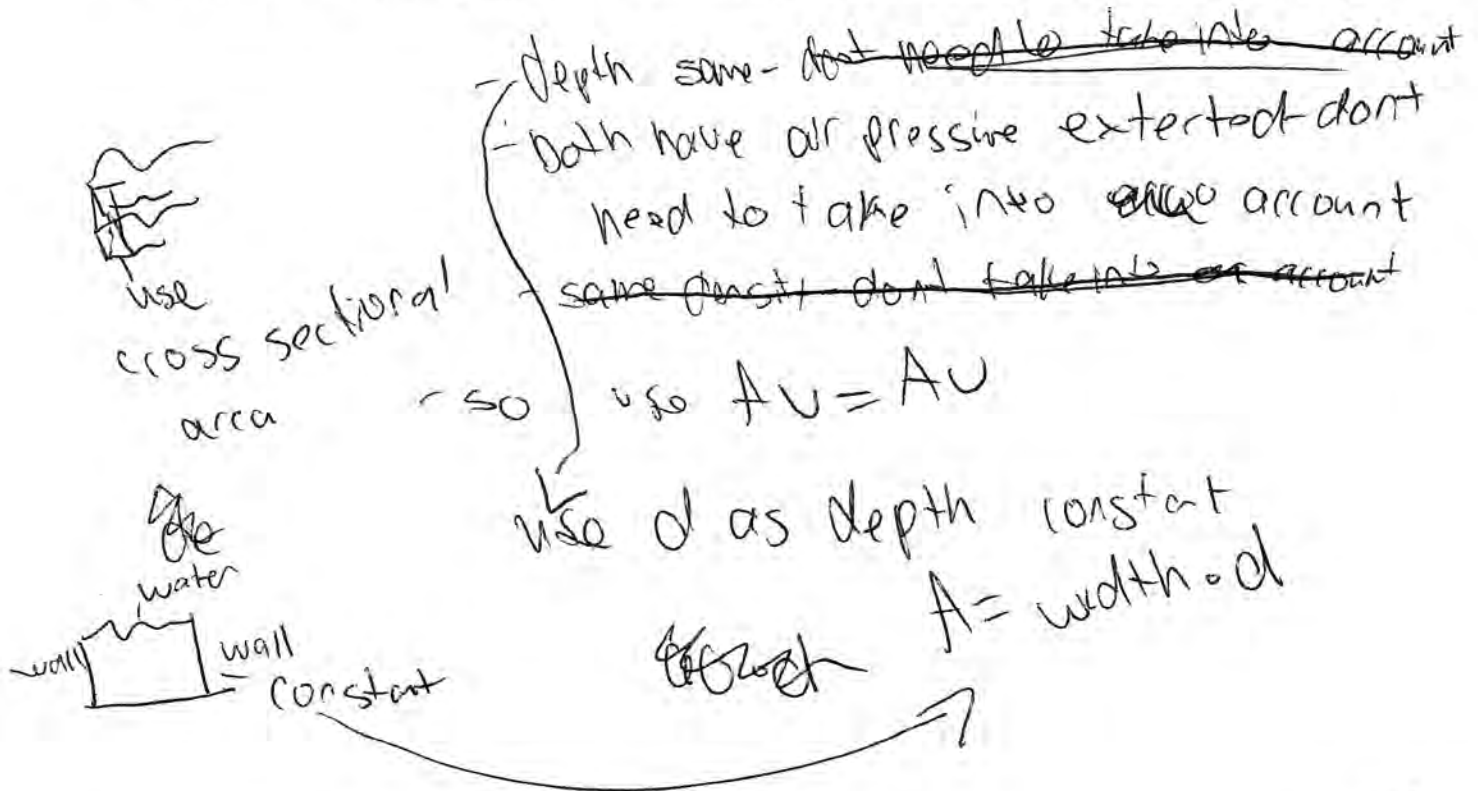 - depth same - dont need to take into account
- both have air pressure exterted - dont
need to take into account
- same density dont take into account
use
cross sectional
area
- so use Av = Av
use d as depth constant
A = width • d
water
wall
wall
= constant